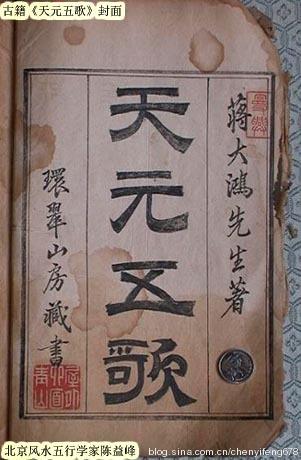 古籍《天元五歌》封面
蔣大鴻先生著
天元五歌
環翠山房藏書
北京风水五行学家陈益峰
blog.sina.com.cn/chenyifeng678